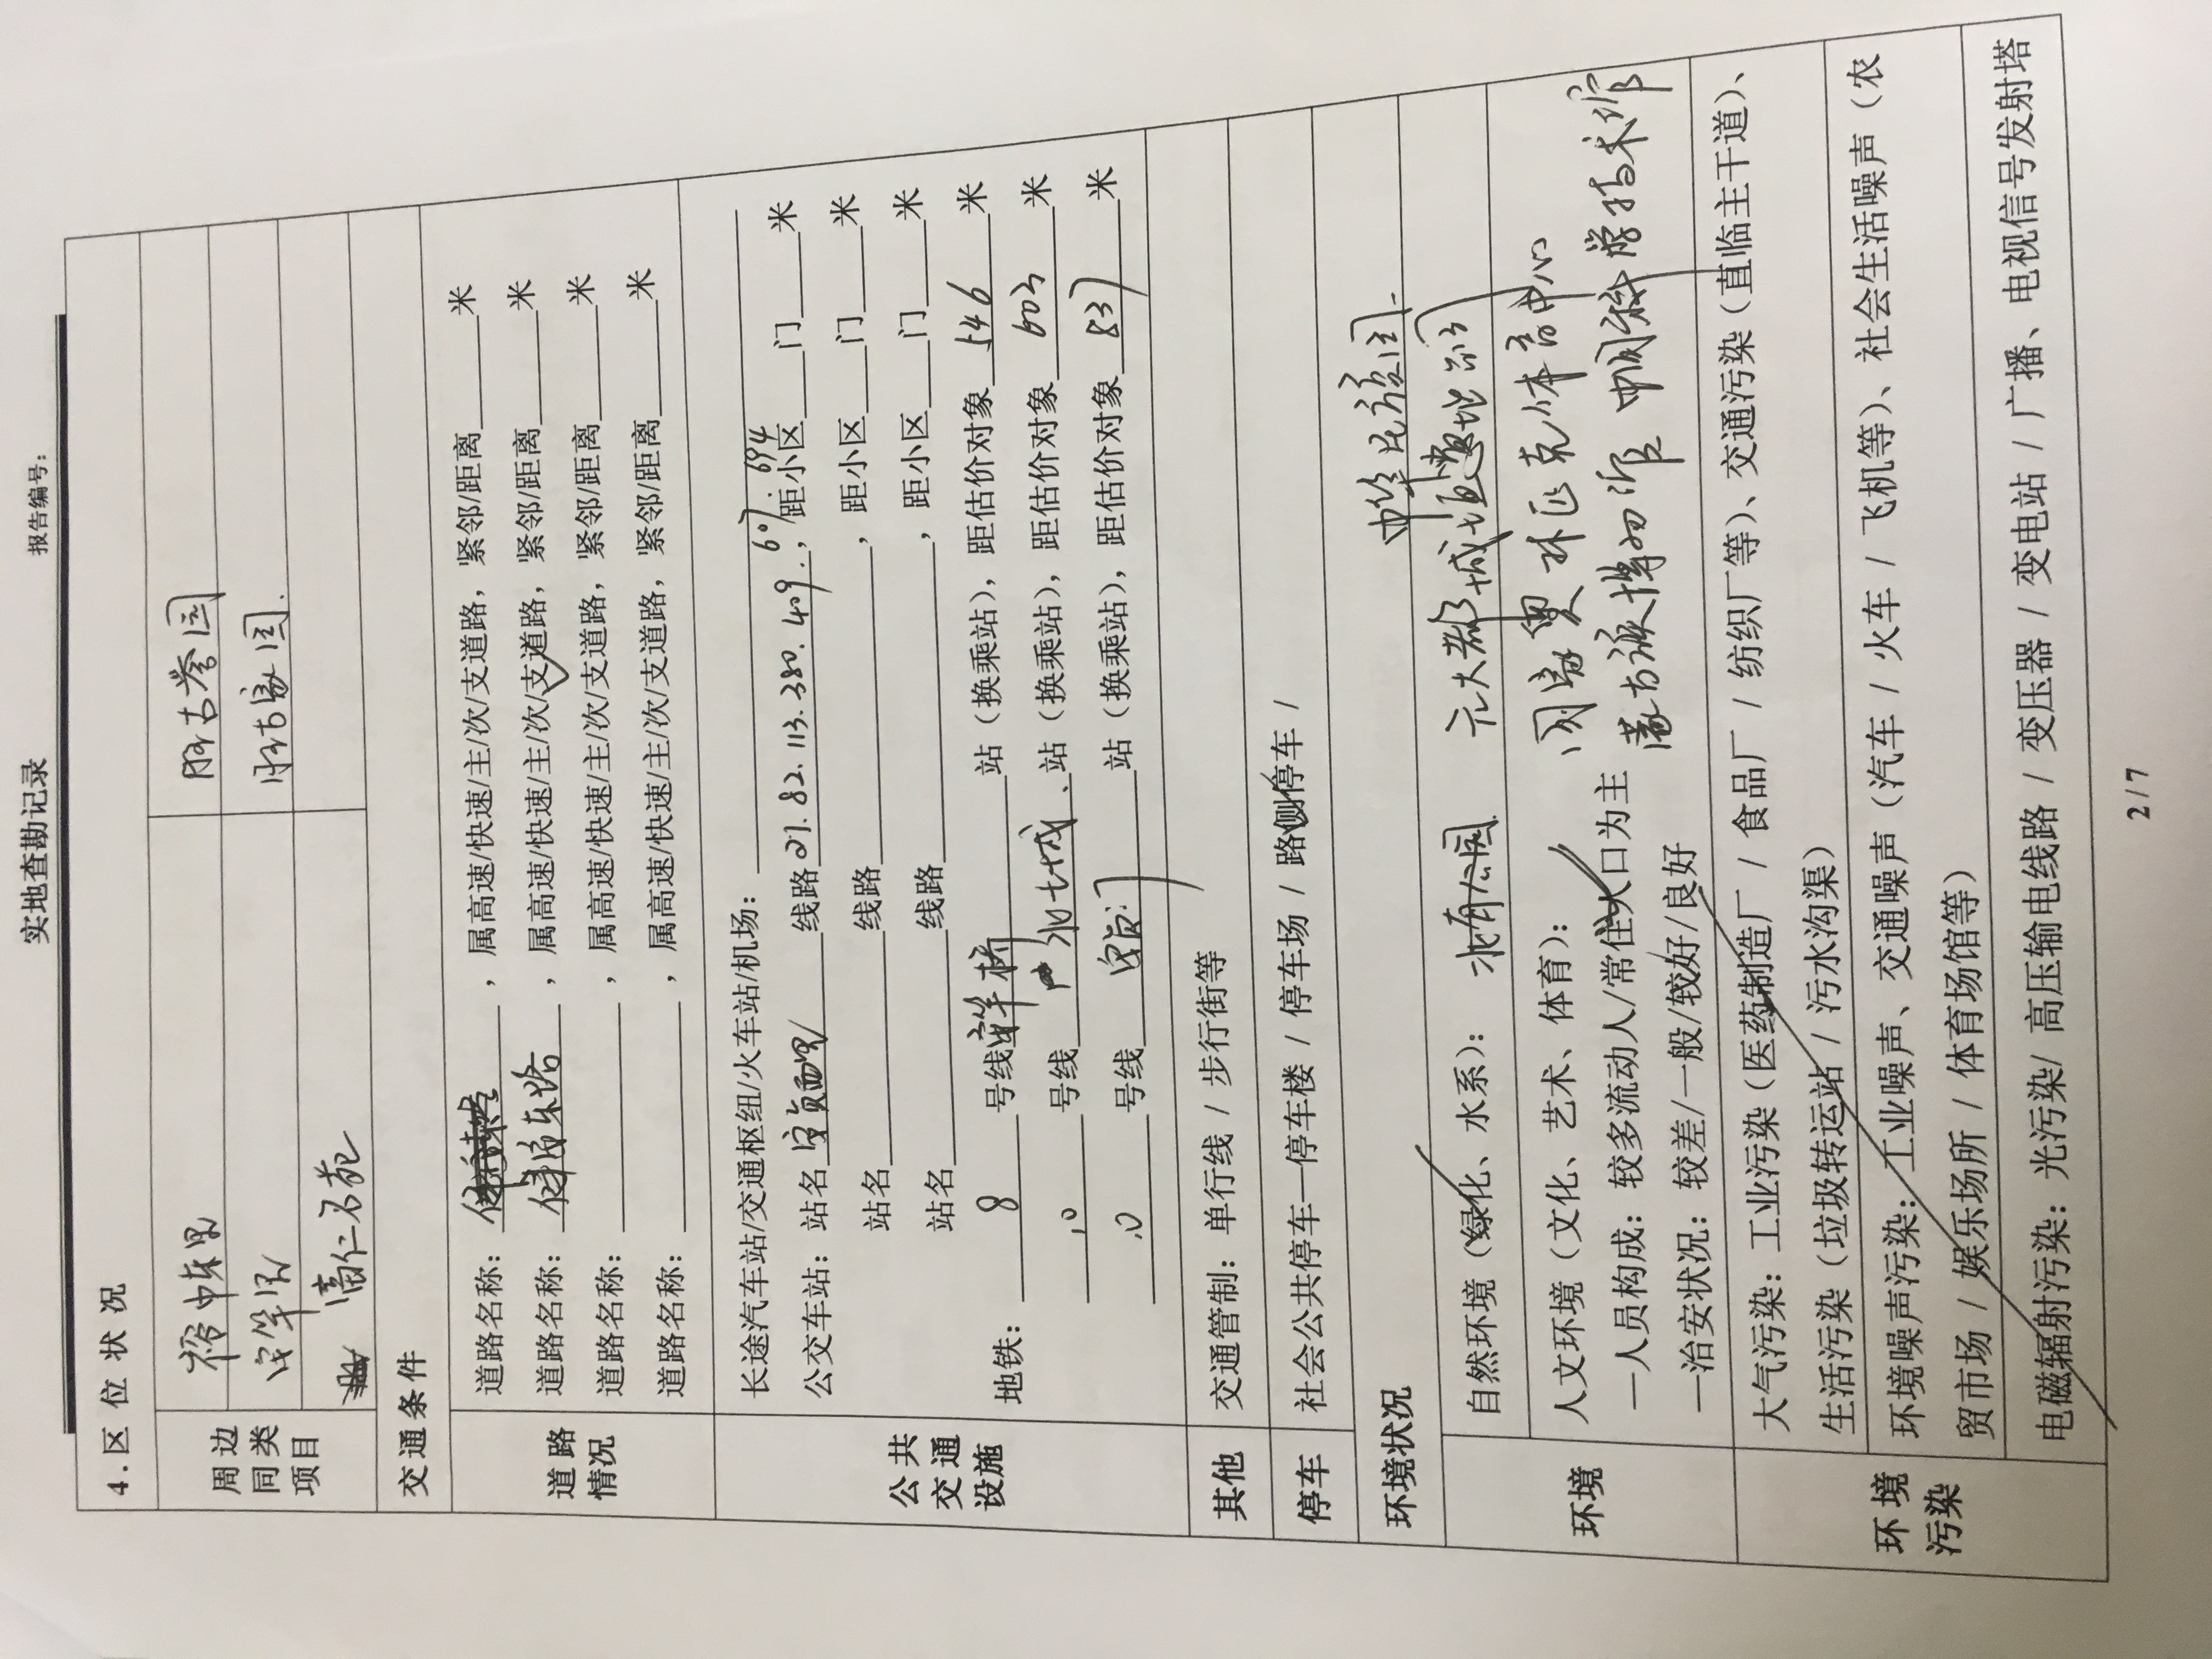 实地查勘记录
报告编号：
4.区 位 状 况
周边同类项目
裕中东里
安华里
高仁名苑
交通条件
道路情况
道路名称： ，属高速/快速/主/次/支道路，紧邻/距离 米
道路名称：健安东路，属高速/快速/主/次/支道路，紧邻/距离 米
道路名称： ，属高速/快速/主/次/支道路，紧邻/距离 米
道路名称： ，属高速/快速/主/次/支道路，紧邻/距离 米
公共交通设施
长途汽车站/交通枢纽/火车站/机场：
公交车站：站名安贞西里 线路27.82.113.380.409.607.694，距小区 门 米
站名 线路 ，距小区 门 米
站名 线路 ，距小区 门 米
地铁： 8 号线安华桥 站（换乘站），距估价对象 546 米
10 号线 北土城、站（换乘站），距估价对象 603 米
10 号线 安贞门 站（换乘站），距估价对象 837 米
其他
交通管制：单行线 / 步行街等
停车
社会公共停车—停车楼 / 停车场 / 路侧停车 /
环境状况
环境
自然环境（绿化、水系）： 元大都城垣遗址公园
中华民族园
人文环境（文化、艺术、体育）： 国家奥林匹克体育中心
中国科学技术馆
—人员构成：较多流动人/常住人口为主
—治安状况：较差/一般/较好/良好
环境污染
大气污染：工业污染（医药制造厂 / 食品厂 / 纺织厂等）、交通污染（直临主干道）、
生活污染（垃圾转运站 / 污水沟渠）
环境噪声污染：工业噪声、交通噪声（汽车 / 火车 / 飞机等）、社会生活噪声（农
贸市场 / 娱乐场所 / 体育场馆等）
电磁辐射污染：光污染/ 高压输电线路 / 变压器 / 变电站 / 广播、电视信号发射塔
2 / 7